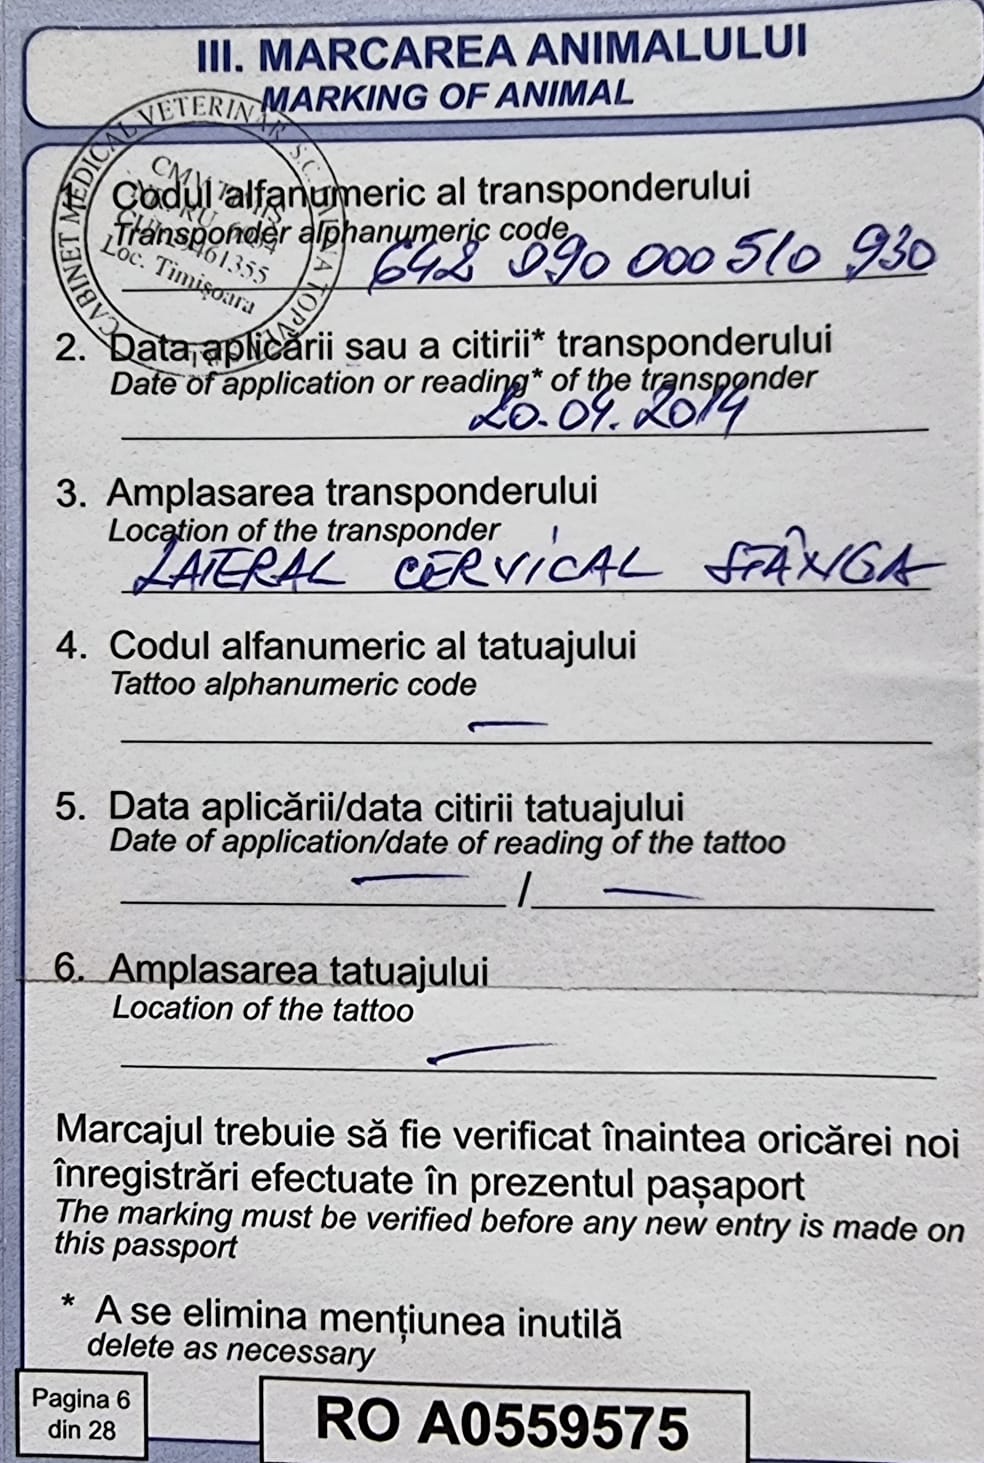 III. MARCAREA ANIMALULUI
MARKING OF ANIMAL
CABINET MEDICAL VETERINAR S.C.
CMVI
Loc. Timișoara
1. Codul alfanumeric al transponderului
Transponder alphanumeric code
642 090 000 510 930
2. Data aplicării sau a citirii* transponderului
Date of application or reading* of the transponder
20.04.2014
3. Amplasarea transponderului
Location of the transponder
LATERAL CERVICAL STÂNGA
4. Codul alfanumeric al tatuajului
Tattoo alphanumeric code
—
5. Data aplicării/data citirii tatuajului
Date of application/date of reading of the tattoo
— / —
6. Amplasarea tatuajului
Location of the tattoo
—
Marcajul trebuie să fie verificat înaintea oricărei noi
înregistrări efectuate în prezentul pașaport
The marking must be verified before any new entry is made on
this passport
* A se elimina mențiunea inutilă
delete as necessary
Pagina 6
din 28
RO A0559575